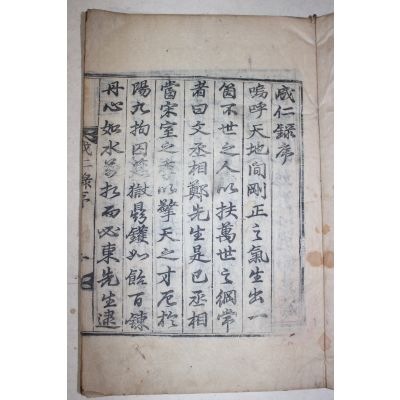 成仁錄序
嗚呼天地間剛正之氣生出一
箇不世之人以扶萬世之綱常
者曰文丞相鄭先生是已丞相
當宋室之 以擎天之才厄於
陽九拘囚 獄鼎鑊如飴百鍊
丹心如水 於而必東先生逮
成仁錄序